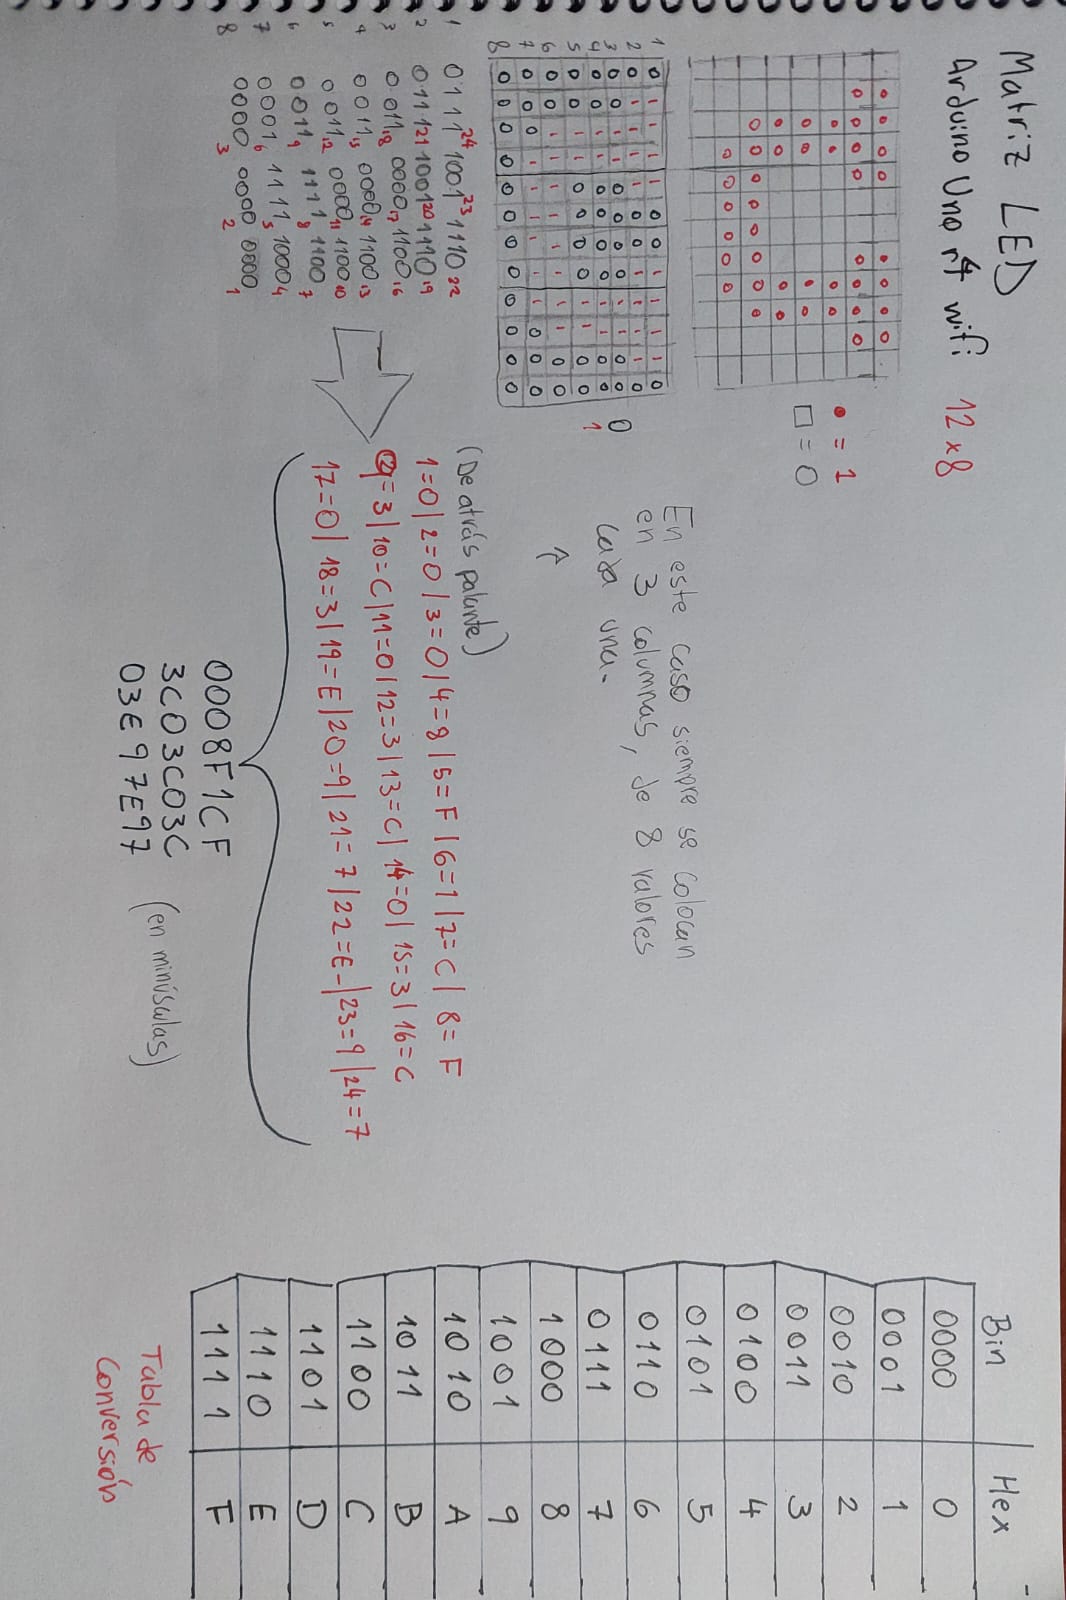 Matriz LED
Arduino Uno r4 wifi 12 x 8
● = 1
□ = 0
1 0 1 1 1 1 0 0 1 1 1 1 0
2 0 1 1 1 1 0 0 1 1 1 1 0
3 0 0 1 1 0 0 0 0 1 1 0 0
4 0 0 1 1 0 0 0 0 1 1 0 0
5 0 0 1 1 0 0 0 0 1 1 0 0
6 0 0 1 1 1 1 1 1 1 1 0 0
7 0 0 0 1 1 1 1 1 1 0 0 0
8 0 0 0 0 0 0 0 0 0 0 0 0
0
1
En este caso siempre se colocan
en 3 columnas, de 8 valores
cada una.
↑
1 0111 24 1001 23 1110 22
2 0111 21 1001 20 1110 19
3 0011 18 0000 17 1100 16
4 0011 15 0000 14 1100 13
5 0011 12 0000 11 1100 10
6 0011 9 1111 8 1100 7
7 0001 6 1111 5 1000 4
8 0000 3 0000 2 0000 1
(De atrás palante)
1=0 | 2=0 | 3=0 | 4=8 | 5=F | 6=1 | 7=C | 8=F
9=3 | 10=C | 11=0 | 12=3 | 13=C | 14=0 | 15=3 | 16=C
17=0 | 18=3 | 19=E | 20=9 | 21=7 | 22=E - | 23=9 | 24=7
0008F1CF
3C03C03C
03E97E97
(en minúsculas)
Bin Hex
0000 0
0001 1
0010 2
0011 3
0100 4
0101 5
0110 6
0111 7
1000 8
1001 9
1010 A
1011 B
1100 C
1101 D
1110 E
1111 F
Tabla de
Conversión